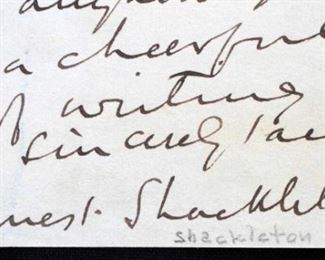 a cheerful
of writing
sincerely
nest. Shackl
shackleton